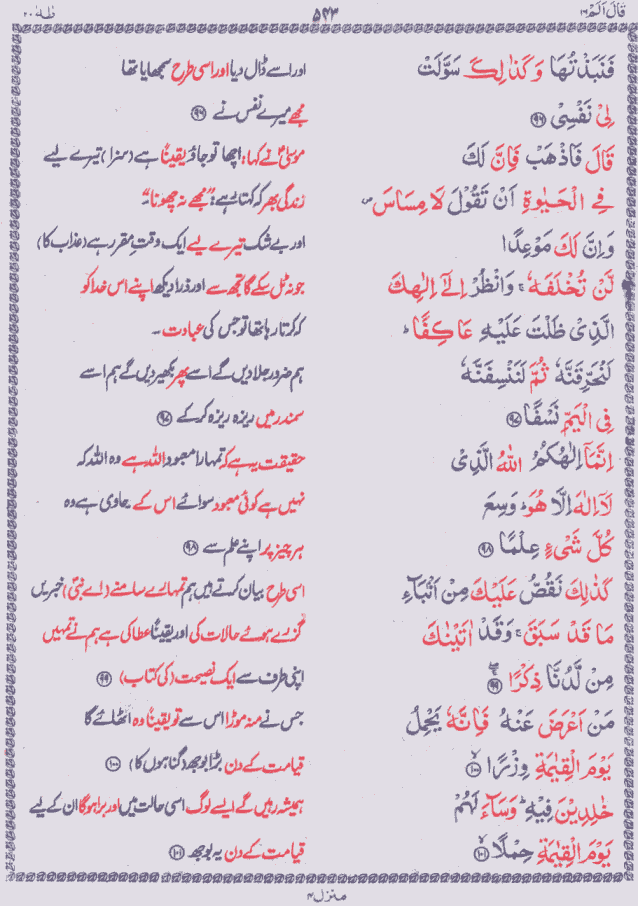 قَالَ اَلَمْ ١٦
٥٤٣
طٰهٰ ٢٠
فَنَبَذْتُهَا وَكَذٰلِكَ سَوَّلَتْ
اور اسے ڈال دیا اور اسی طرح سمجھایا تھا
لِیْ نَفْسِیْ ﴿٩٦﴾
مجھے میرے نفس نے ﴿٩٦﴾
قَالَ فَاذْهَبْ فَاِنَّ لَكَ
موسیٰؑ نے کہا: اچھا تو جاؤ یقیناً ہے (سزا) تیرے لیے
فِی الْحَیٰوةِ اَنْ تَقُوْلَ لَا مِسَاسَ ۪
زندگی بھر کہ کہتا رہے: ”مجھے نہ چھونا“۔
وَاِنَّ لَكَ مَوْعِدًا
اور بے شک تیرے لیے ایک وقتِ مقرر ہے (عذاب کا)
لَّنْ تُخْلَفَهٗ ۚ وَانْظُرْ اِلٰۤی اِلٰهِكَ
جو نہ ٹل سکے گا تجھ سے اور ذرا دیکھ اپنے اس خدا کو
الَّذِیْ ظَلْتَ عَلَیْهِ عَاكِفًا ؕ
کہ کرتا رہا تھا تو جس کی عبادت ۔
لَنُحَرِّقَنَّهٗ ثُمَّ لَنَنْسِفَنَّهٗ
ہم ضرور جلا دیں گے اسے پھر بکھیر دیں گے ہم اسے
فِی الْیَمِّ نَسْفًا ﴿٩٧﴾
سمندر میں ریزہ ریزہ کرکے ﴿٩٧﴾
اِنَّمَاۤ اِلٰهُكُمُ اللّٰهُ الَّذِیْ
حقیقت یہ ہے کہ تمہارا معبود اللہ ہے وہ اللہ کہ
لَاۤ اِلٰهَ اِلَّا هُوَ ؕ وَسِعَ
نہیں ہے کوئی معبود سوائے اس کے حاوی ہے وہ
كُلَّ شَیْءٍ عِلْمًا ﴿٩٨﴾
ہر چیز پر اپنے علم سے ﴿٩٨﴾
كَذٰلِكَ نَقُصُّ عَلَیْكَ مِنْ اَنْۢبَآءِ
اسی طرح بیان کرتے ہیں ہم تمہارے سامنے (اے نبیؐ) خبریں
مَا قَدْ سَبَقَ ۚ وَقَدْ اٰتَیْنٰكَ
گزرے ہوئے حالات کی اور یقیناً عطا کی ہے ہم نے تمہیں
مِنْ لَّدُنَّا ذِكْرًا ﴿٩٩﴾
اپنی طرف سے ایک نصیحت (کی کتاب) ﴿٩٩﴾
مَنْ اَعْرَضَ عَنْهُ فَاِنَّهٗ یَحْمِلُ
جس نے منہ موڑا اس سے تو یقیناً وہ اٹھائے گا
یَوْمَ الْقِیٰمَةِ وِزْرًا ﴿١٠٠﴾
قیامت کے دن بڑا بوجھ (گناہوں کا) ﴿١٠٠﴾
خٰلِدِیْنَ فِیْهِ ؕ وَسَآءَ لَهُمْ
ہمیشہ رہیں گے ایسے لوگ اسی حالت میں اور برا ہوگا ان کے لیے
یَوْمَ الْقِیٰمَةِ حِمْلًا ﴿١٠١﴾
قیامت کے دن یہ بوجھ ﴿١٠١﴾
منزل ٤